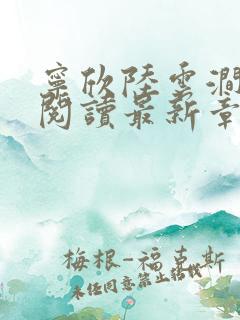 寧欣陸雲澗
閱讀最新章
梅根-福克斯
未经同意禁止转载